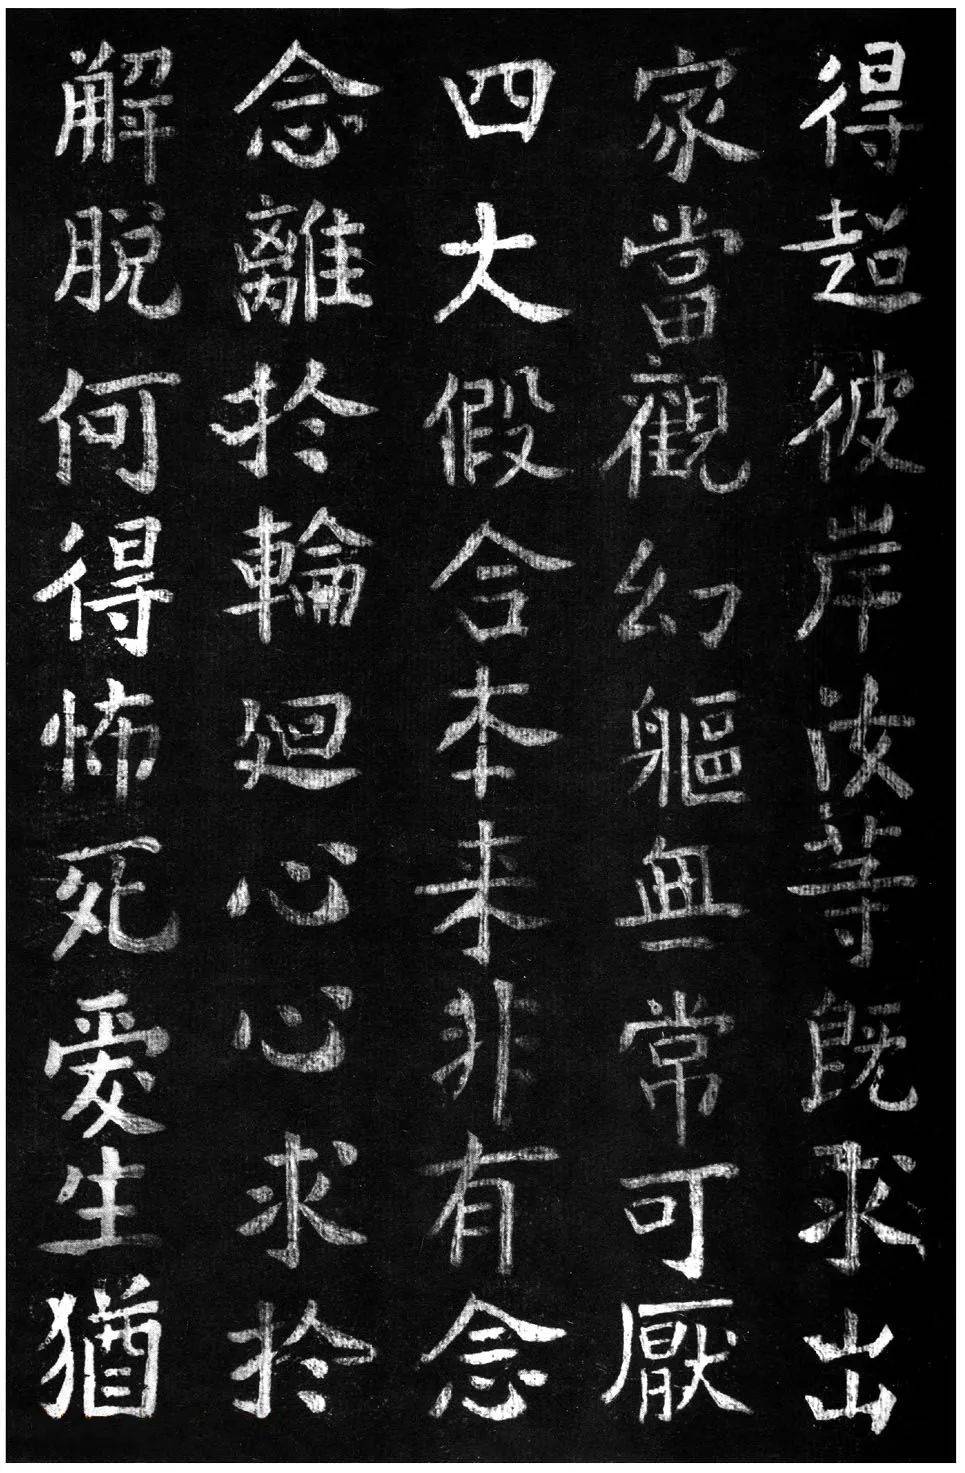 得超彼岸汝等既求出
家當觀幻軀無常可厭
四大假合本来非有念
念離於輪迴心心求於
解脫何得怖死愛生猶